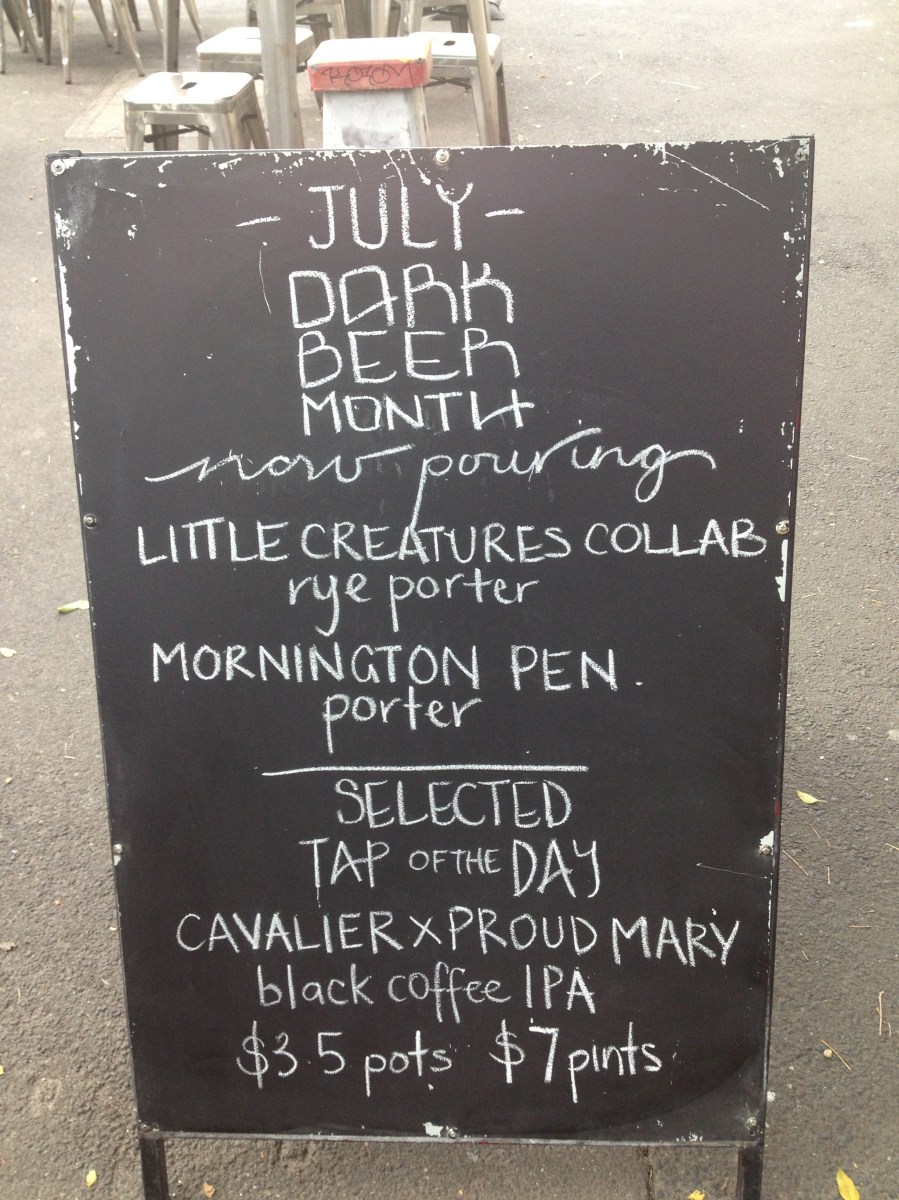 - JULY -
DARK
BEER
MONTH
now pouring
LITTLE CREATURES COLLAB
rye porter
MORNINGTON PEN.
porter
SELECTED
TAP OF THE DAY
CAVALIER X PROUD MARY
black coffee IPA
$3.5 pots $7 pints